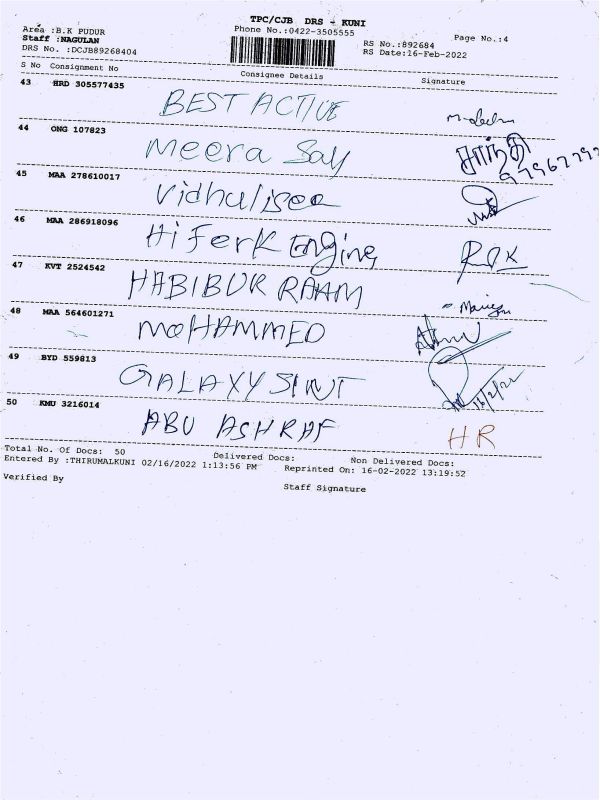 TPC/CJB DRS - KUNI
Area :B.K PUDUR
Phone No.:0422-3505555
Page No.:4
Staff :NAGULAN
RS No.:892684
DRS No. :DCJB89268404
RS Date:16-Feb-2022
S No Consignment No Consignee Details Signature
43 HRD 305577435 BEST ACTIVE
44 ONG 107823 Meera Say சாந்தி
45 MAA 278610017
46 MAA 286918096 Hi Ferk Engine
47 KVT 2524542 HABIBUR RAAM
48 MAA 564601271 MOHAMMED
49 BYD 559813 GALAXY SINT 16/2/22
50 KMU 3216014 ABU ASHRAF HR
Total No. Of Docs: 50 Delivered Docs: Non Delivered Docs:
Entered By :THIRUMALKUNI 02/16/2022 1:13:56 PM Reprinted On: 16-02-2022 13:19:52
Verified By
Staff Signature